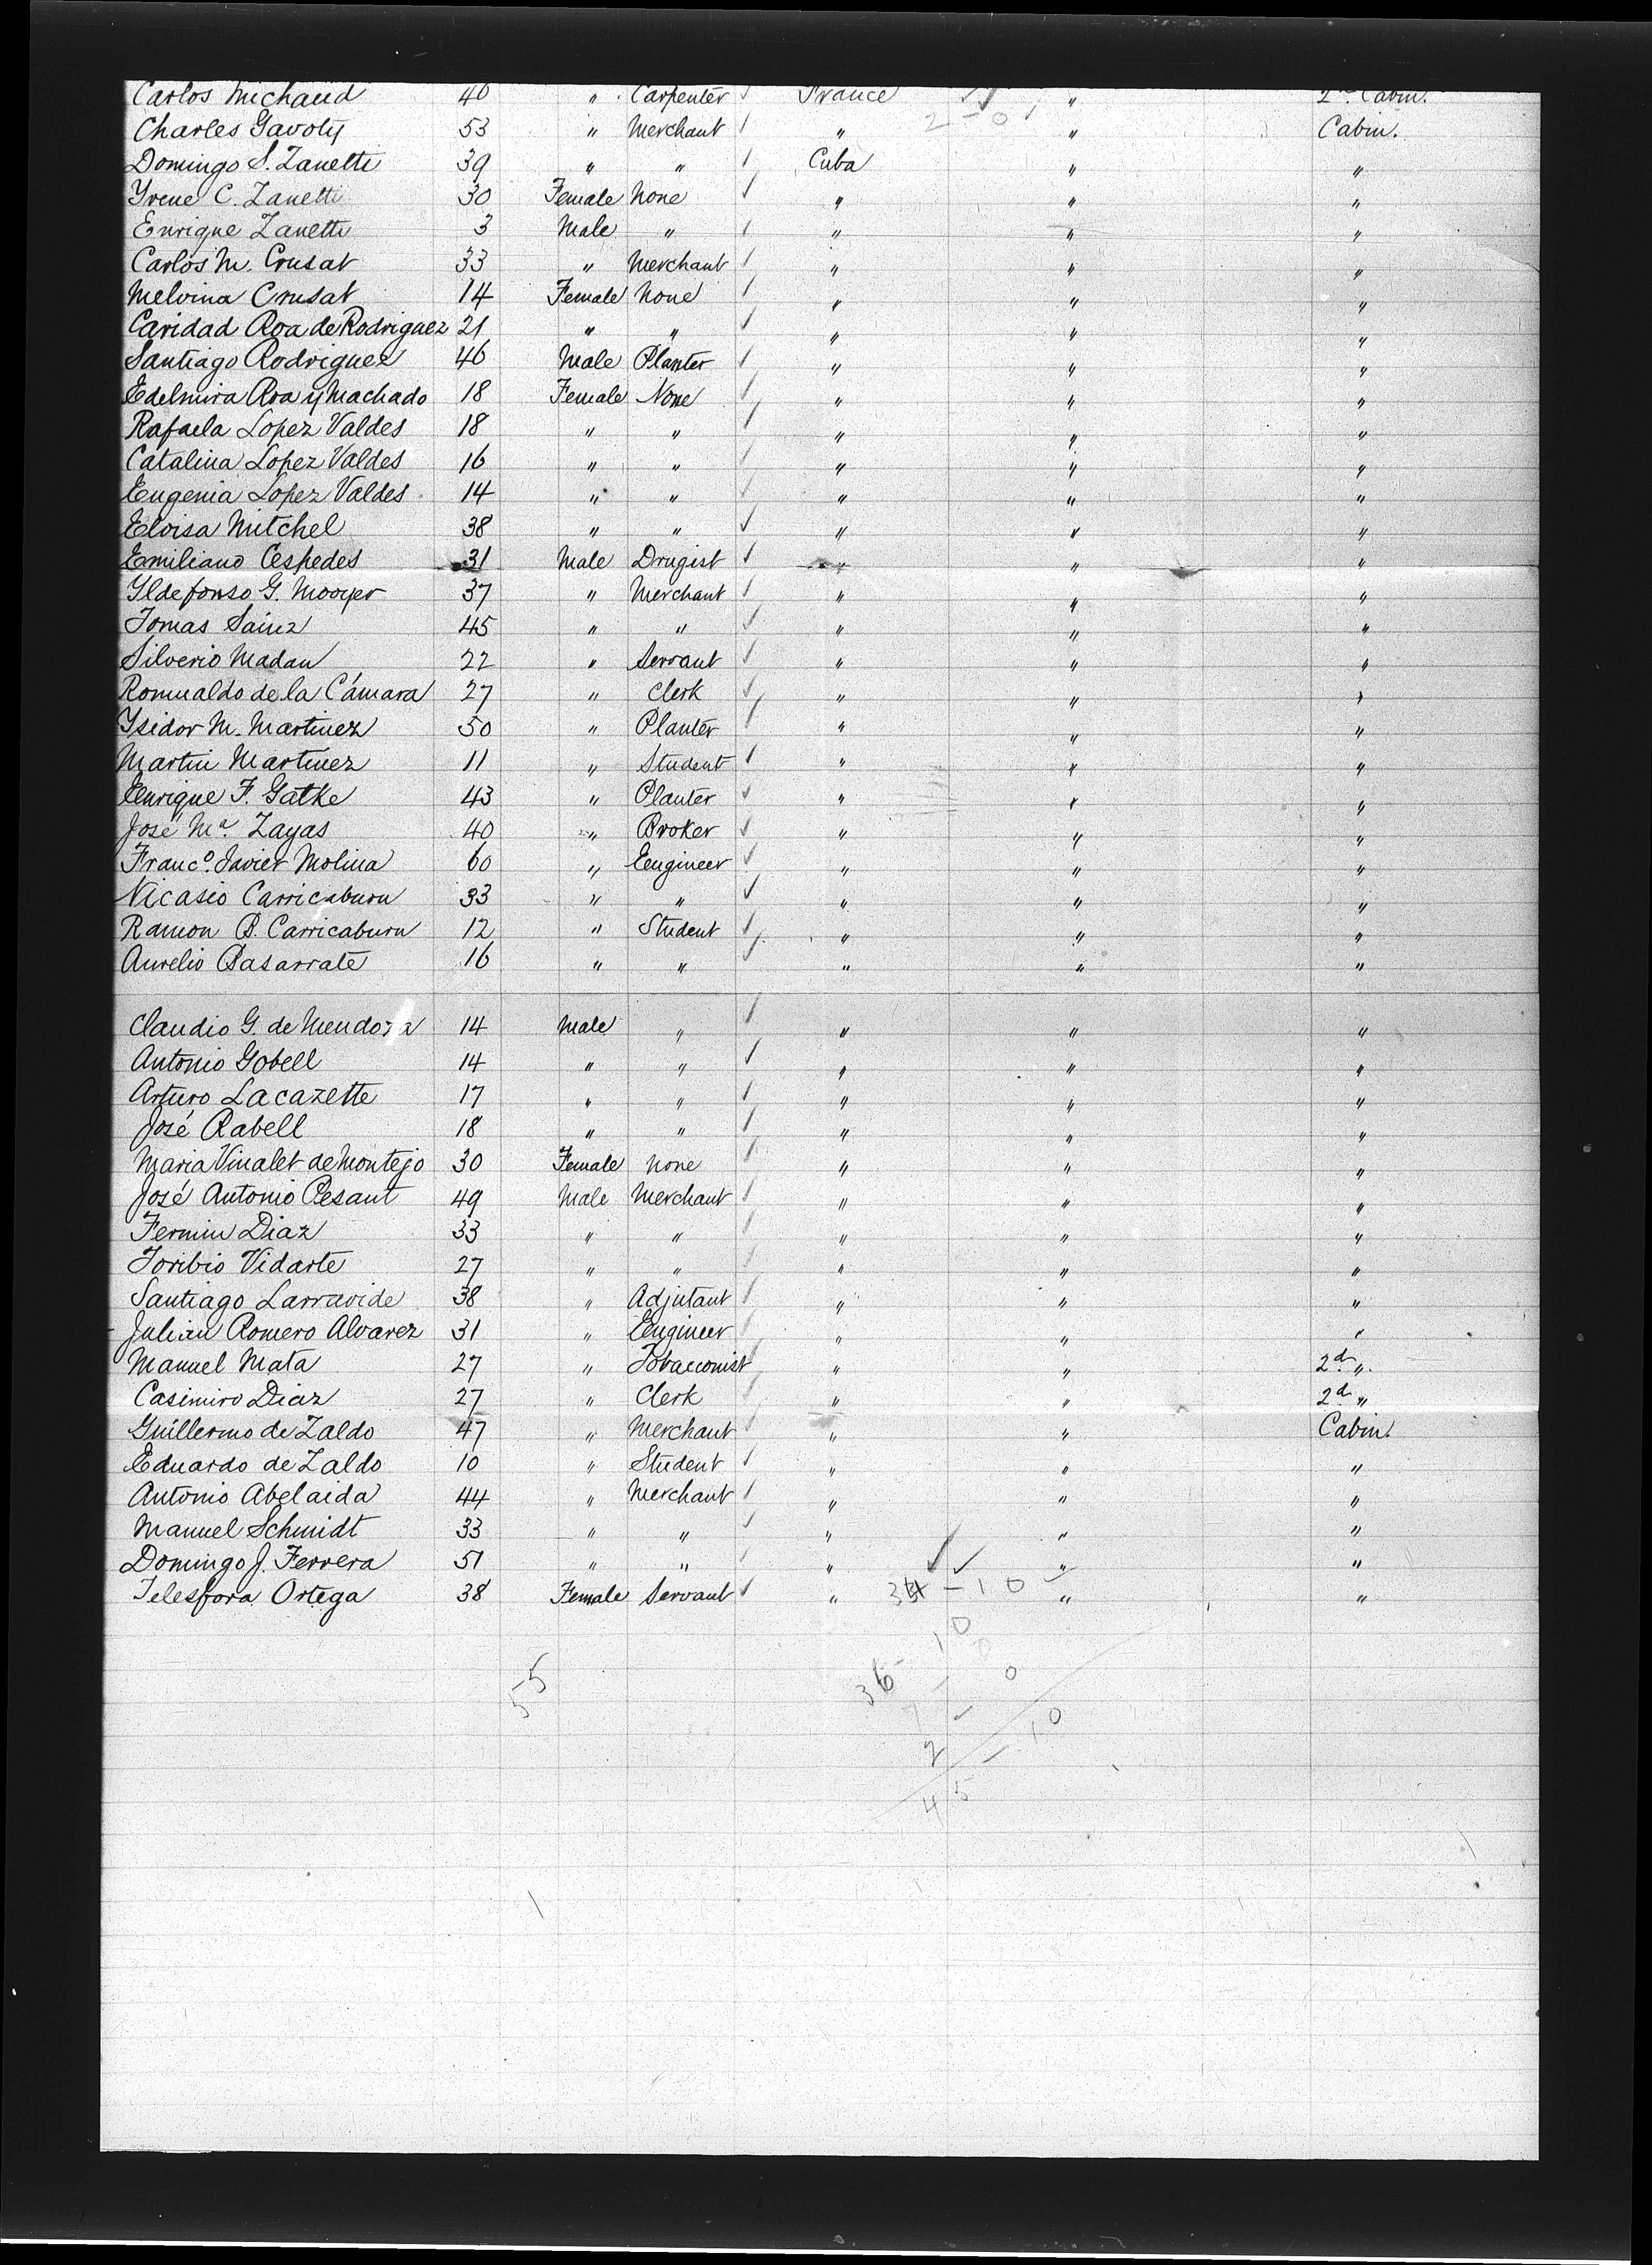 Carlos Michaud 40 " Carpenter ✓ France " 2d. Cabin.
Charles Gavoty 53 " Merchant ✓ " 2 - 0 " Cabin.
Domingo S. Zanetti 39 " " ✓ Cuba " "
Yrene C. Zanetti 30 Female None ✓ " " "
Enrique Zanetti 3 Male " ✓ " " "
Carlos M. Crusat 33 " Merchant ✓ " " "
Melvina Crusat 14 Female None ✓ " " "
Caridad Roa de Rodriguez 21 " " ✓ " " "
Santiago Rodriguez 46 Male Planter ✓ " " "
Edelmira Roa y Machado 18 Female None ✓ " " "
Rafaela Lopez Valdes 18 " " ✓ " " "
Catalina Lopez Valdes 16 " " ✓ " " "
Eugenia Lopez Valdes 14 " " ✓ " " "
Eloisa Mitchel 38 " " ✓ " " "
Emiliano Cespedes 31 Male Drugist ✓ " " "
Yldefonso G. Mooyer 37 " Merchant ✓ " " "
Tomas Sainz 45 " " ✓ " " "
Silverio Madan 22 " Servant ✓ " " "
Romualdo de la Cámara 27 " Clerk ✓ " " "
Ysidor M. Martinez 50 " Planter ✓ " " "
Martin Martinez 11 " Student ✓ " " "
Enrique F. Gatke 43 " Planter ✓ " " "
José Ma. Zayas 40 " Broker ✓ " " "
Franco. Javier Molina 60 " Engineer ✓ " " "
Nicasio Carricaburu 33 " " ✓ " " "
Ramon B. Carricaburu 12 " Student ✓ " " "
Aurelio Basarrate 16 " " ✓ " " "
Claudio G. de Mendoza 14 Male " ✓ " " "
Antonio Gobell 14 " " ✓ " " "
Arturo Lacazette 17 " " ✓ " " "
José Rabell 18 " " ✓ " " "
Maria Vinalet de Montejo 30 Female None ✓ " " "
José Antonio Pesant 49 Male Merchant ✓ " " "
Fermin Diaz 33 " " ✓ " " "
Toribio Vidarte 27 " " ✓ " " "
Santiago Larravide 38 " Adjutant ✓ " " "
Julian Romero Alvarez 31 " Engineer ✓ " " "
Manuel Mata 27 " Tobacconist ✓ " " 2d. "
Casimiro Diaz 27 " Clerk ✓ " " 2d "
Guillermo de Zaldo 47 " Merchant ✓ " " Cabin.
Eduardo de Zaldo 10 " Student ✓ " " "
Antonio Abelaida 44 " Merchant ✓ " " "
Manuel Schmidt 33 " " ✓ " " "
Domingo J. Ferrera 51 " " ✓ " ✓ ✓ " "
Telesfora Ortega 38 Female Servant ✓ " - 10 " "
36 - 10
55
7 - 0
2 - 0
45 - 10